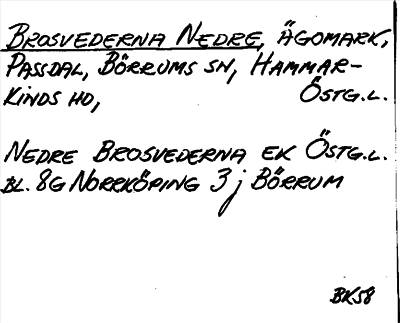 BROSVEDERNA NEDRE, ÄGOMARK,
PASSDAL, BÖRRUMS SN, HAMMAR-
KINDS HD, ÖSTG.L.
NEDRE BROSVEDERNA EK ÖSTG.L.
BL. 8G NORRKÖPING 3 j BÖRRUM
BK58